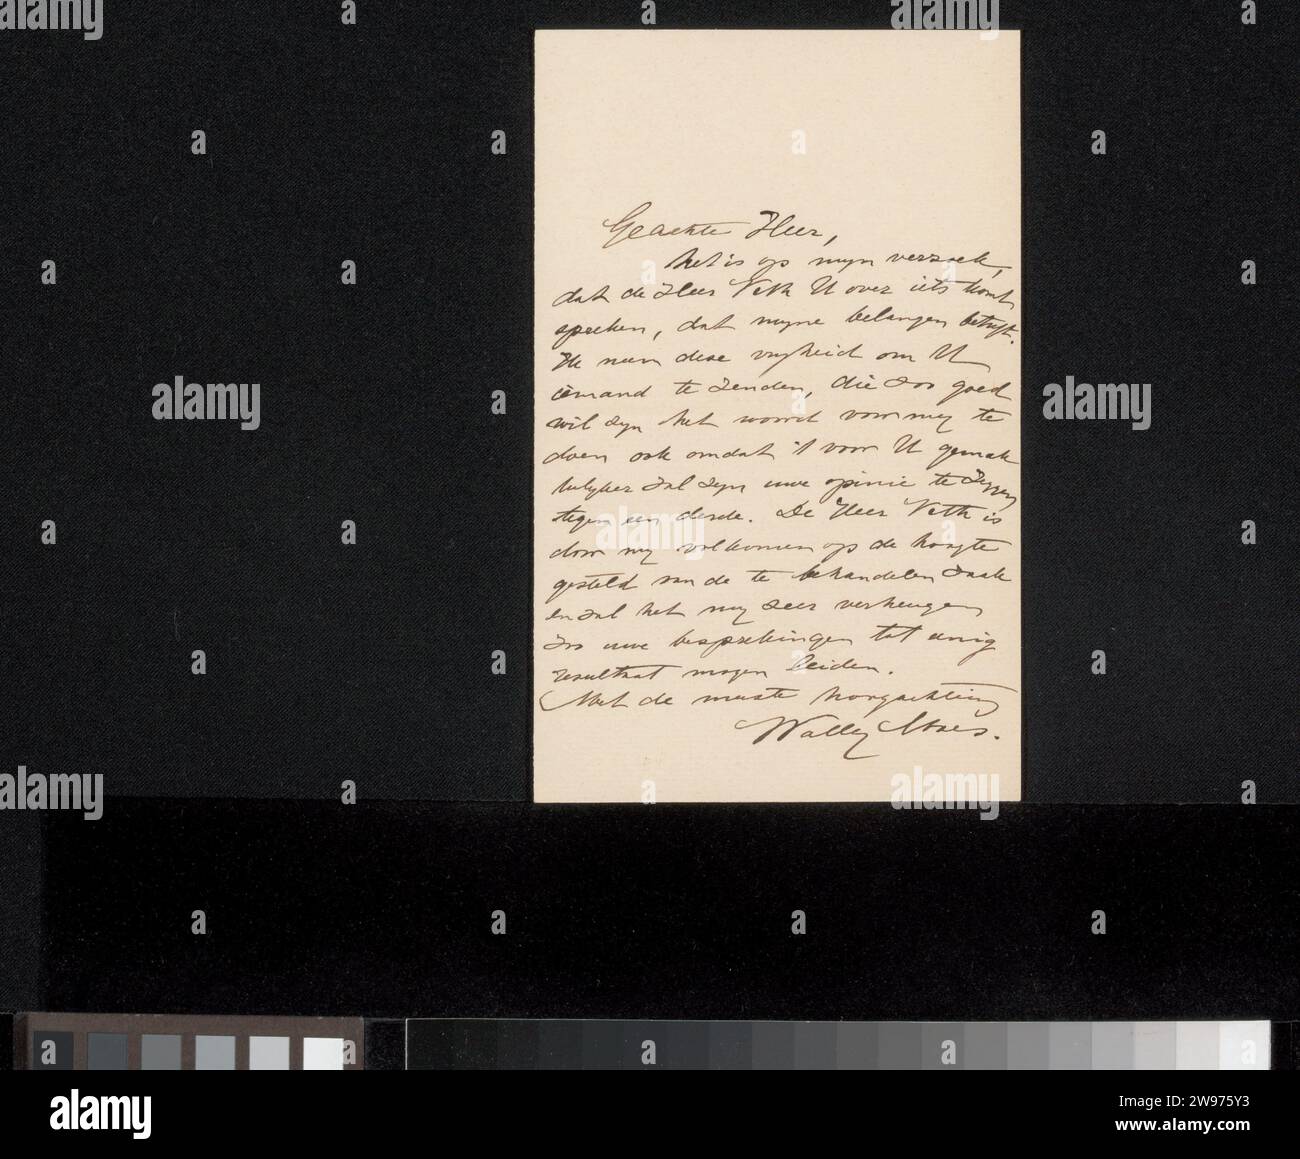 Geachte Heer,
het is op mijn verzoek,
dat de Heer Veth U over iets komt
spreken, dat mijne belangen betreft.
Ik neem deze vrijheid om U
iemand te zenden, die zoo goed
wil zijn het woord voor mij te
doen ook omdat 't voor U gemak
kelijker zal zijn uwe opinie te zeggen
tegen een derde. De Heer Veth is
door mij volkomen op de hoogte
gesteld van de te behandelen zaak
en zal het mij zeer verheugen
zoo uwe besprekingen tot eenig
resultaat mogen leiden.
Met de meeste hoogachting
Wally Moes.
alamy
Image ID: 2W975Y3
www.alamy.com